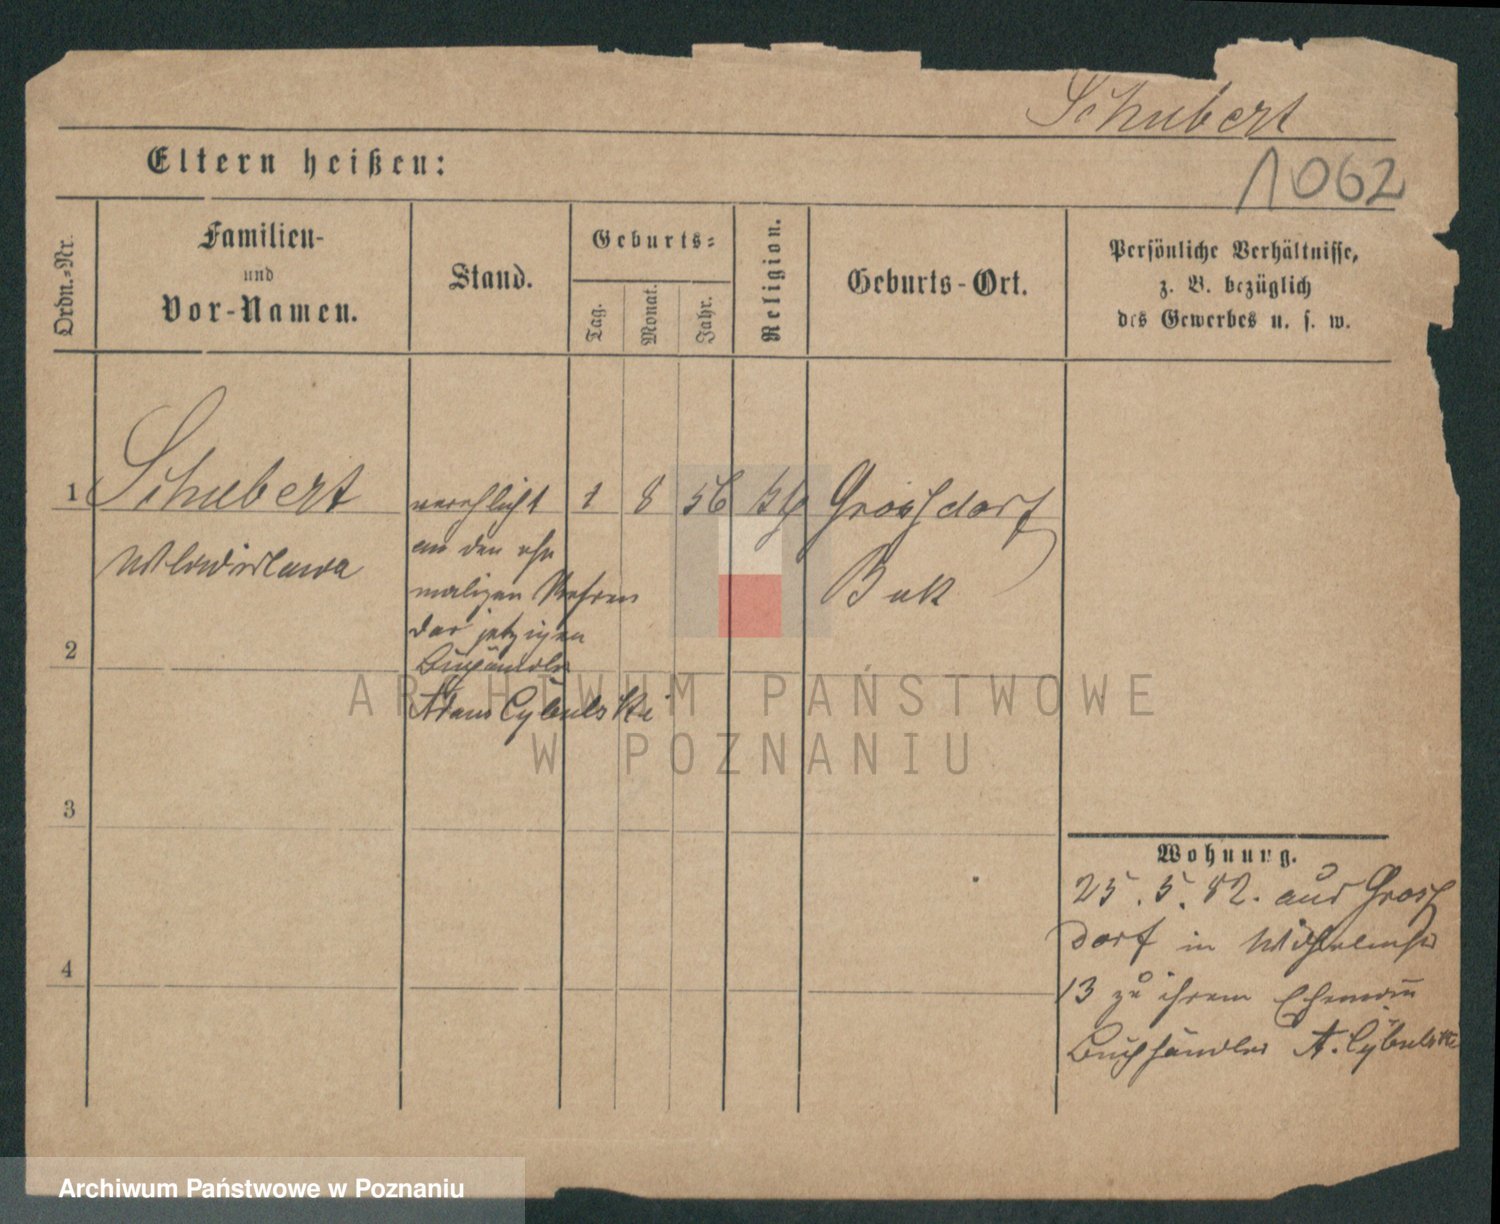 Schubert
Eltern heißen:
1062
Ordn.-Nr.
Familien-
und
Vor-Namen.
Stand.
Geburts-
Tag.
Monat.
Jahr.
Religion.
Geburts-Ort.
Persönliche Verhältnisse,
z. B. bezüglich
des Gewerbes u. s. w.
1
Schubert
verehlicht
1
8
56
kth
Grossdorf
Wladislawa
an den ehe
maligen
Buk
der jetzigen
2
Buchändler
Adam Cybulski
ARCHIWUM PAŃSTWOWE
W POZNANIU
3
Wohnung.
25. 5. 82. aus Gross
dorf in Wilhelmstr
4
13 zu ihrem Ehemann
Buchhändler A. Cybulski
Archiwum Państwowe w Poznaniu